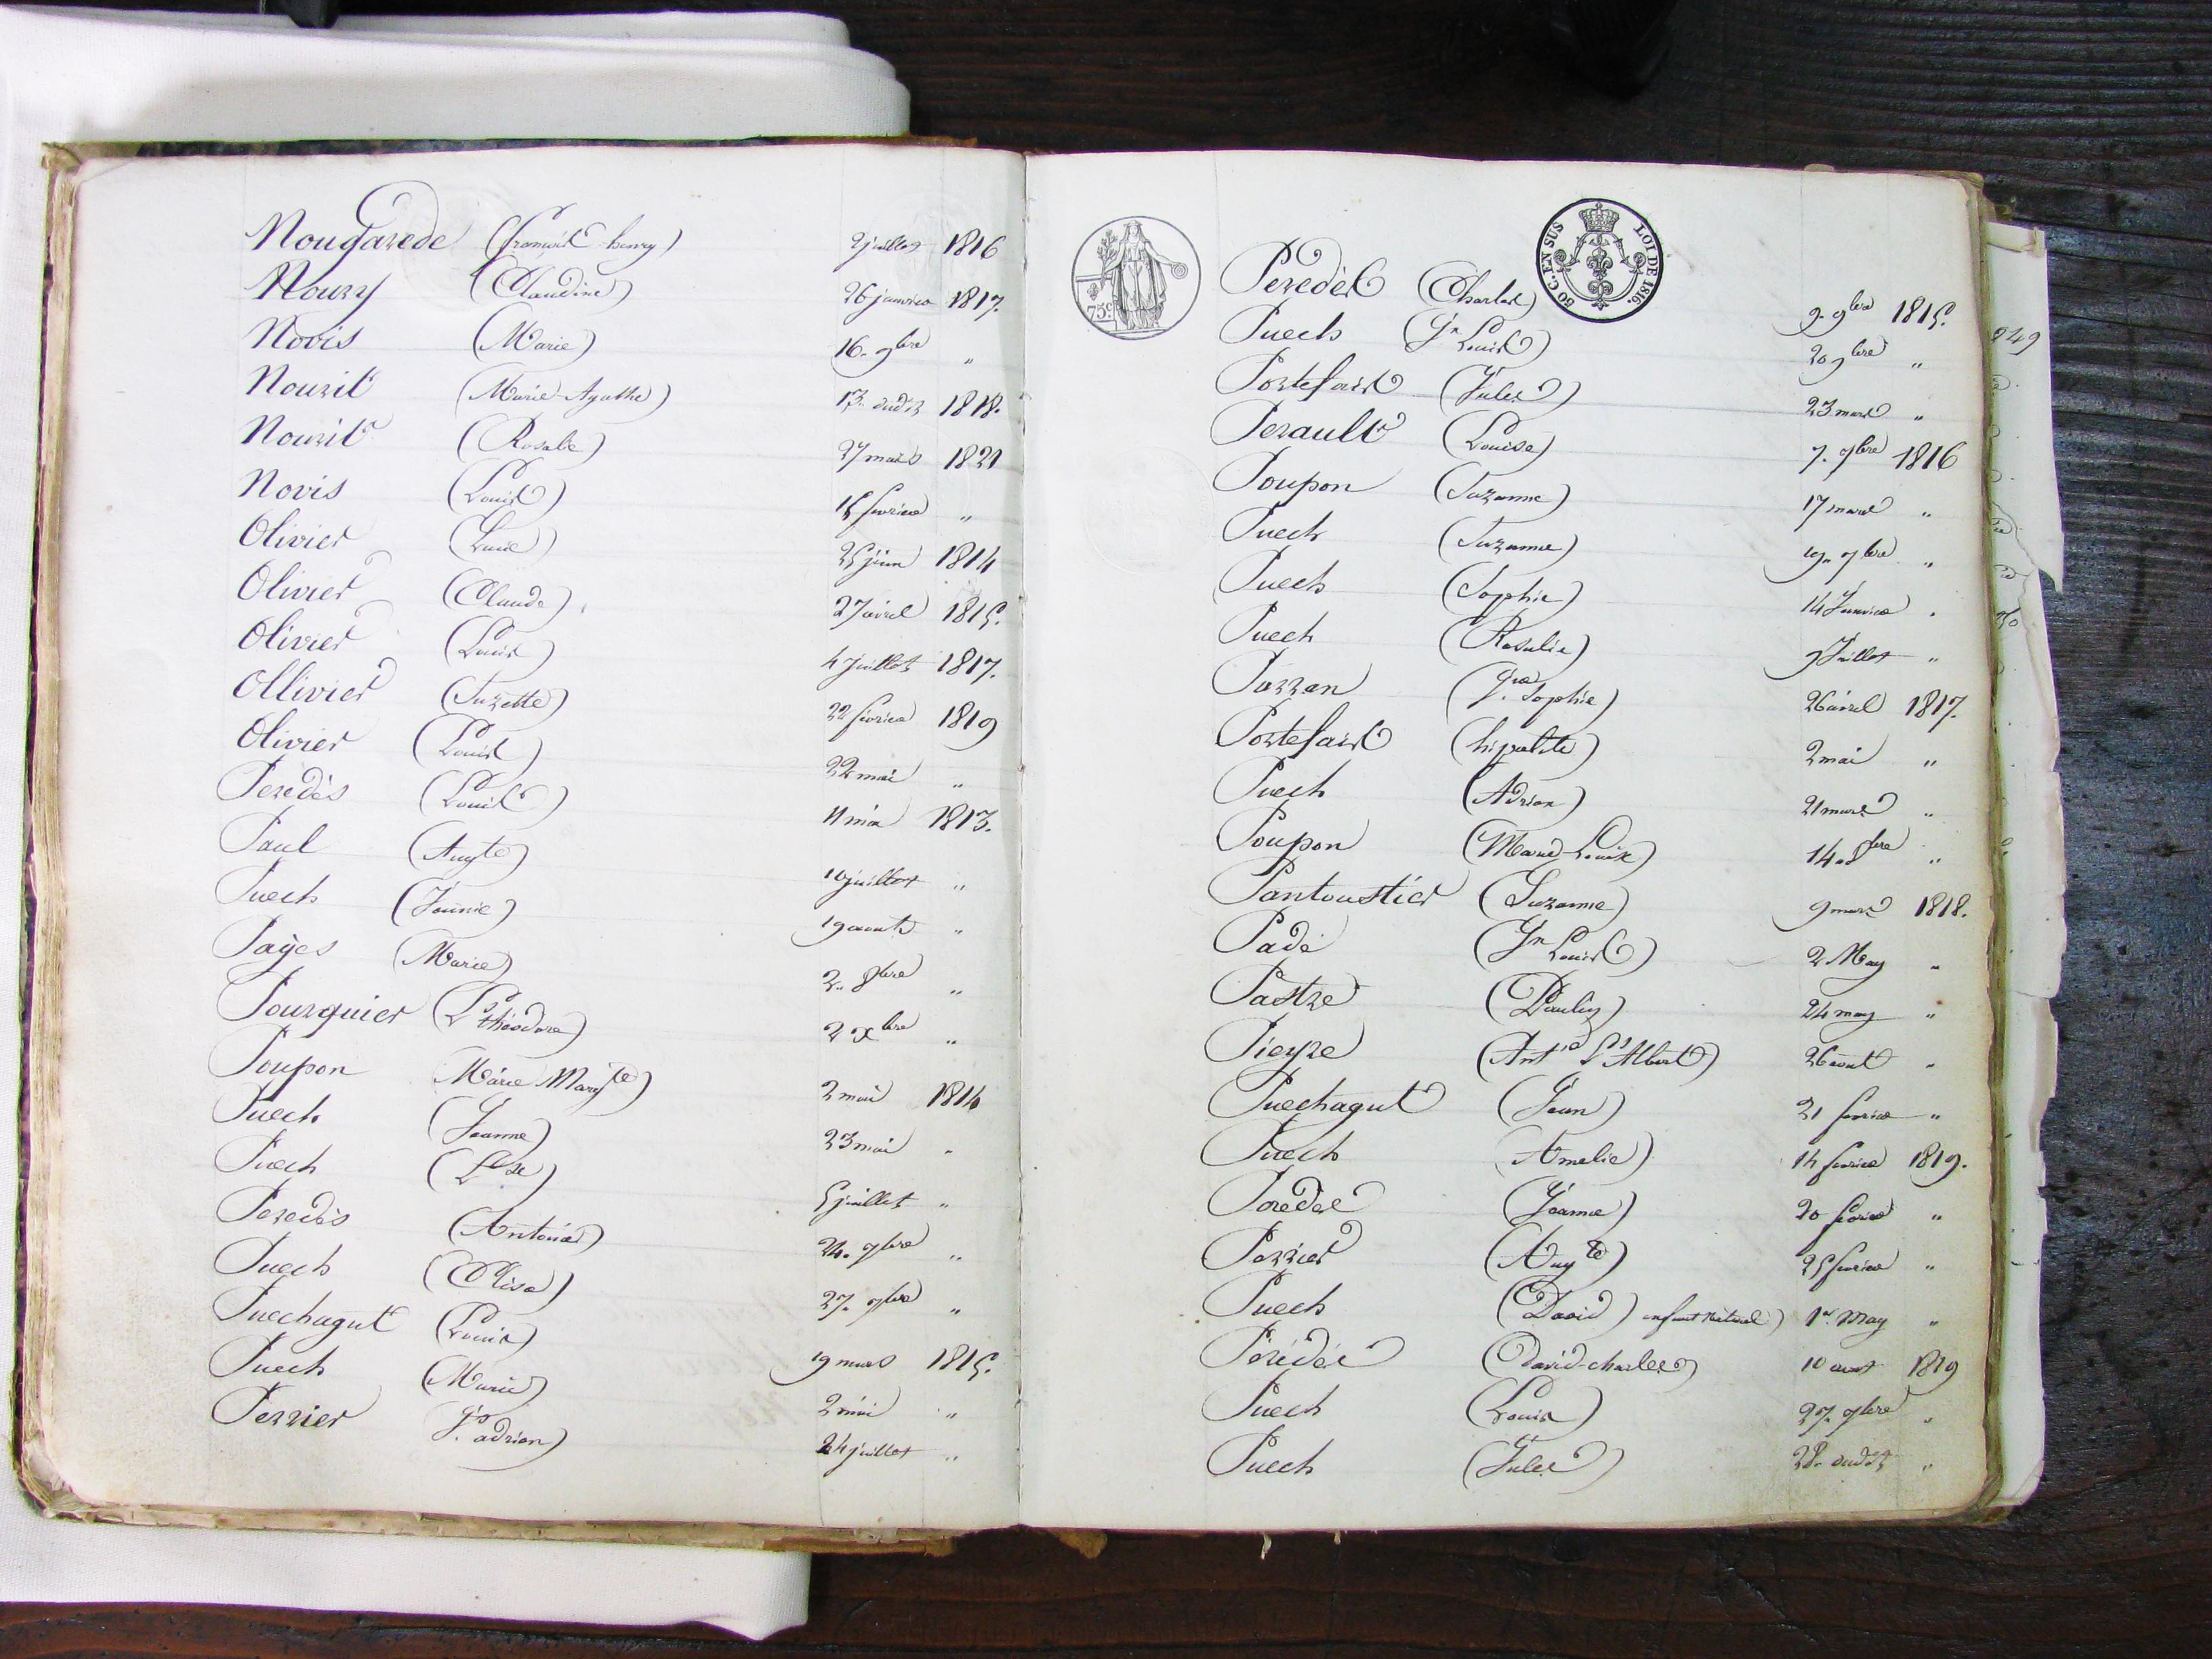 Nougarede (françois-henry) 2 juillet 1816
Noury (Claudine) 26 janvier 1817.
Novis (Marie) 16. 9bre "
Nourit (Marie-Agathe) 13. dudt 1818.
Nourit (Rosalie) 27 mars 1821
Novis (Louis) 15 fevrier "
Olivier (Louise) 25 juin 1814
Olivier (Claude) 27 avril 1815.
Olivier (Louis) 4 Juillet 1817.
Ollivier (Suzette) 22 fevrier 1819
Olivier (Louis) 22 mai "
Peredès (Louis) 11 mai 1813.
Paul (Augte) 10 juillet "
Puech (Fannie) 19 aout "
Payes (Marie) 2. 8bre "
Pourquier (Ls théodore) 2 xbre "
Poupon Marie Margte) 2 mai 1814
Puech (Jeanne) 23 mai "
Puech (Lse) 5 juillet "
Peredès (Antoine) 24. 9bre "
Puech (Elisa) 27. 9bre "
Puechagut (Louis) 19 mars 1815.
Puech (Marie) 2 mai "
Perrier (P. adrien) 24 juillet "
75c
50 C. EN SUS LOI DE 1816.
Peredès (Charles) 9. 9bre 1815.
Puech (Jn Louis) 20 9bre "
Portefaix (Jules) 23 mars "
Perault (Louise) 7. 9bre 1816
Poupon (Suzanne) 17 mars "
Puech (Suzanne) 19. 9bre "
Puech (Sophie) 14 Janvier "
Puech (Rosalie) 9 Juillet "
Pozzan Sophie) 26 avril 1817.
Portefaix (hipolite) 2 mai "
Puech (Adrien) 21 mars "
Poupon (Marie Louise) 14. 8bre "
Pantoustier (Suzanne) 9 mars 1818.
Padé (Jn Louis) 2 May "
Pastre (Paulin) 24 may "
Pieyre (Antne Ls Albert) 26 aout "
Puechagut (Jean) 21 fevrier "
Puech (Amelie) 14 fevrier 1819.
Peredès (Jeanne) 20 fevrier "
Perrier (Augte) 25 fevrier "
Puech (David) enfant naturel) 1er May "
Péredès (David-charles) 10 aout 1819
Puech (Louis) 27. 9bre "
Puech (Jules) 28. dudt "
249